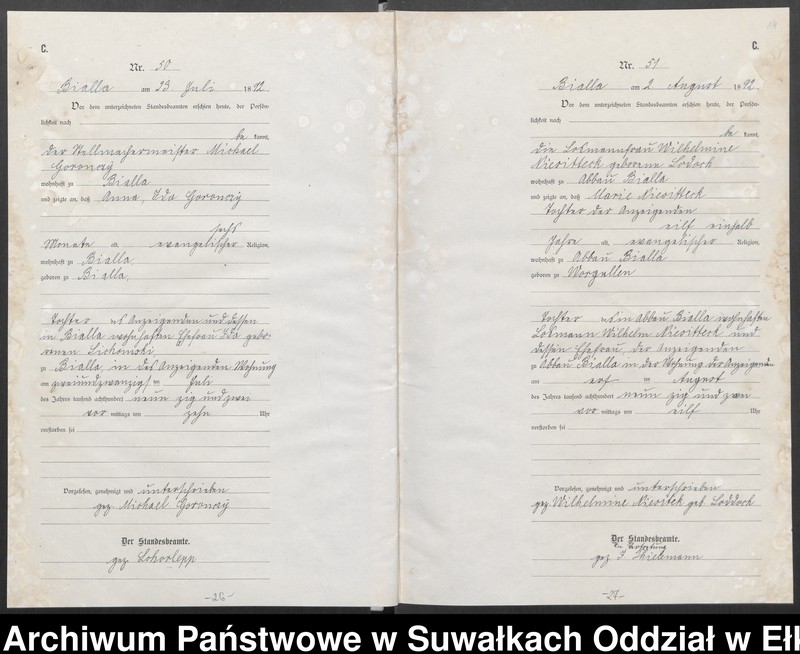 C.
Nr. 50
Bialla am 23 Juli 1892
Vor dem unterzeichneten Standesbeamten erschien heute, der Persön-
lichkeit nach
be kannt,
der Stellmachermeister Michael
Goronczy
wohnhaft zu Bialla
und zeigte an, daß Anna, Ida Goronczy
sechs
Monate alt, evangelischer Religion,
wohnhaft zu Bialla
geboren zu Bialla,
Tochter des Anzeigenden und dessen
in Bialla wohnhaften Ehefrau Ida gebor-
renen
zu Bialla, in des Anzeigenden Wohnung
am zweiundzwanzigsten Juli
des Jahres tausend achthundert neunzig und zwei
vor mittags um zehn Uhr
verstorben sei
Vorgelesen, genehmigt und unterschrieben
gez. Michael Goronczy
Der Standesbeamte.
gez.
-26-
C.
Nr. 51
Bialla am 2 August 1892
Vor dem unterzeichneten Standesbeamten erschien heute, der Persön-
lichkeit nach
be kannt,
die Losmannfrau Wilhelmine
geborene
wohnhaft zu Abbau Bialla
und zeigte an, daß Marie
Tochter der Anzeigenden
eilf einhalb
Jahre alt, evangelischer Religion,
wohnhaft zu Abbau Bialla
geboren zu Worgullen
Tochter des in Abbau Bialla wohnhaften
Losmann Wilhelm und
dessen Ehefrau, der Anzeigenden
zu Abbau Bialla in der Wohnung der Anzeigenden
am August
des Jahres tausend achthundert neunzig und zwei
vor mittags um eilf Uhr
verstorben sei
Vorgelesen, genehmigt und unterschrieben
gez. Wilhelmine geb. Loddoch
Der Standesbeamte.
In Vertretung
gez.
-27-
Archiwum Państwowe w Suwałkach Oddział w Ełk